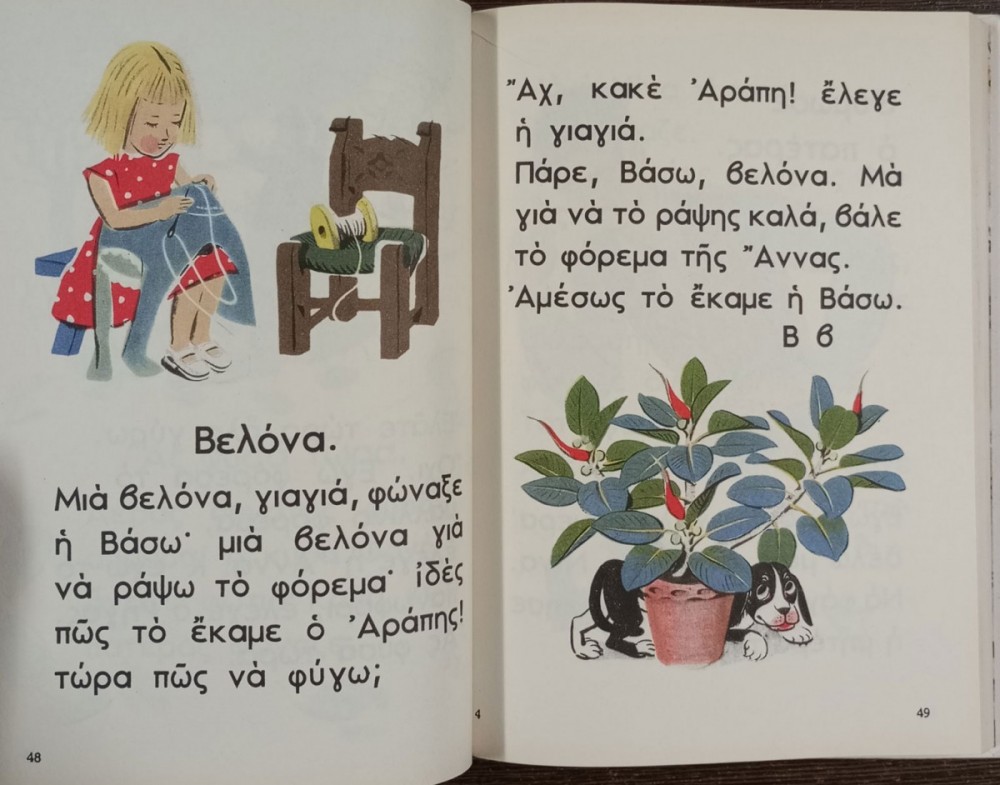 Βελόνα.
Μιὰ βελόνα, γιαγιά, φώναξε
ἡ Βάσω· μιὰ βελόνα γιὰ
νὰ ράψω τὸ φόρεμα· ἰδὲς
πῶς τὸ ἔκαμε ὁ Ἀράπης!
τώρα πῶς νὰ φύγω;
48
Ἄχ, κακὲ Ἀράπη! ἔλεγε
ἡ γιαγιά.
Πάρε, Βάσω, βελόνα. Μὰ
γιὰ νὰ τὸ ράψης καλά, βάλε
τὸ φόρεμα τῆς Ἄννας.
Ἀμέσως τὸ ἔκαμε ἡ Βάσω.
Β ϐ
4
49